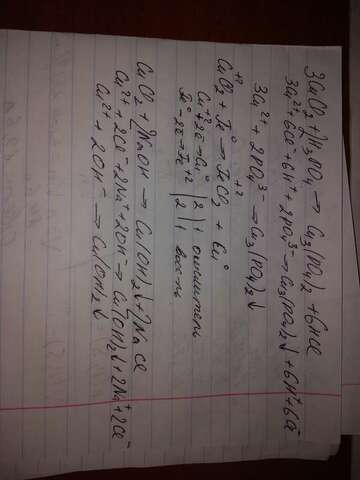 3CuCl₂ + 2H₃PO₄ → Cu₃(PO₄)₂ + 6HCl
3Cu²⁺ + 6Cl⁻ + 6H⁺ + 2PO₄³⁻ → Cu₃(PO₄)₂↓ + 6H⁺ + 6Cl⁻
3Cu²⁺ + 2PO₄³⁻ → Cu₃(PO₄)₂↓
Cu⁺²Cl₂ + Fe⁰ → Fe⁺²Cl₂ + Cu⁰
Cu⁺² + 2e → Cu⁰ | 2 | 1 окислитель
Fe⁰ - 2e → Fe⁺² | 2 | 1 восст-ль
CuCl₂ + 2NaOH → Cu(OH)₂↓ + 2NaCl
Cu²⁺ + 2Cl⁻ + 2Na⁺ + 2OH⁻ → Cu(OH)₂↓ + 2Na⁺ + 2Cl⁻
Cu²⁺ + 2OH⁻ → Cu(OH)₂↓